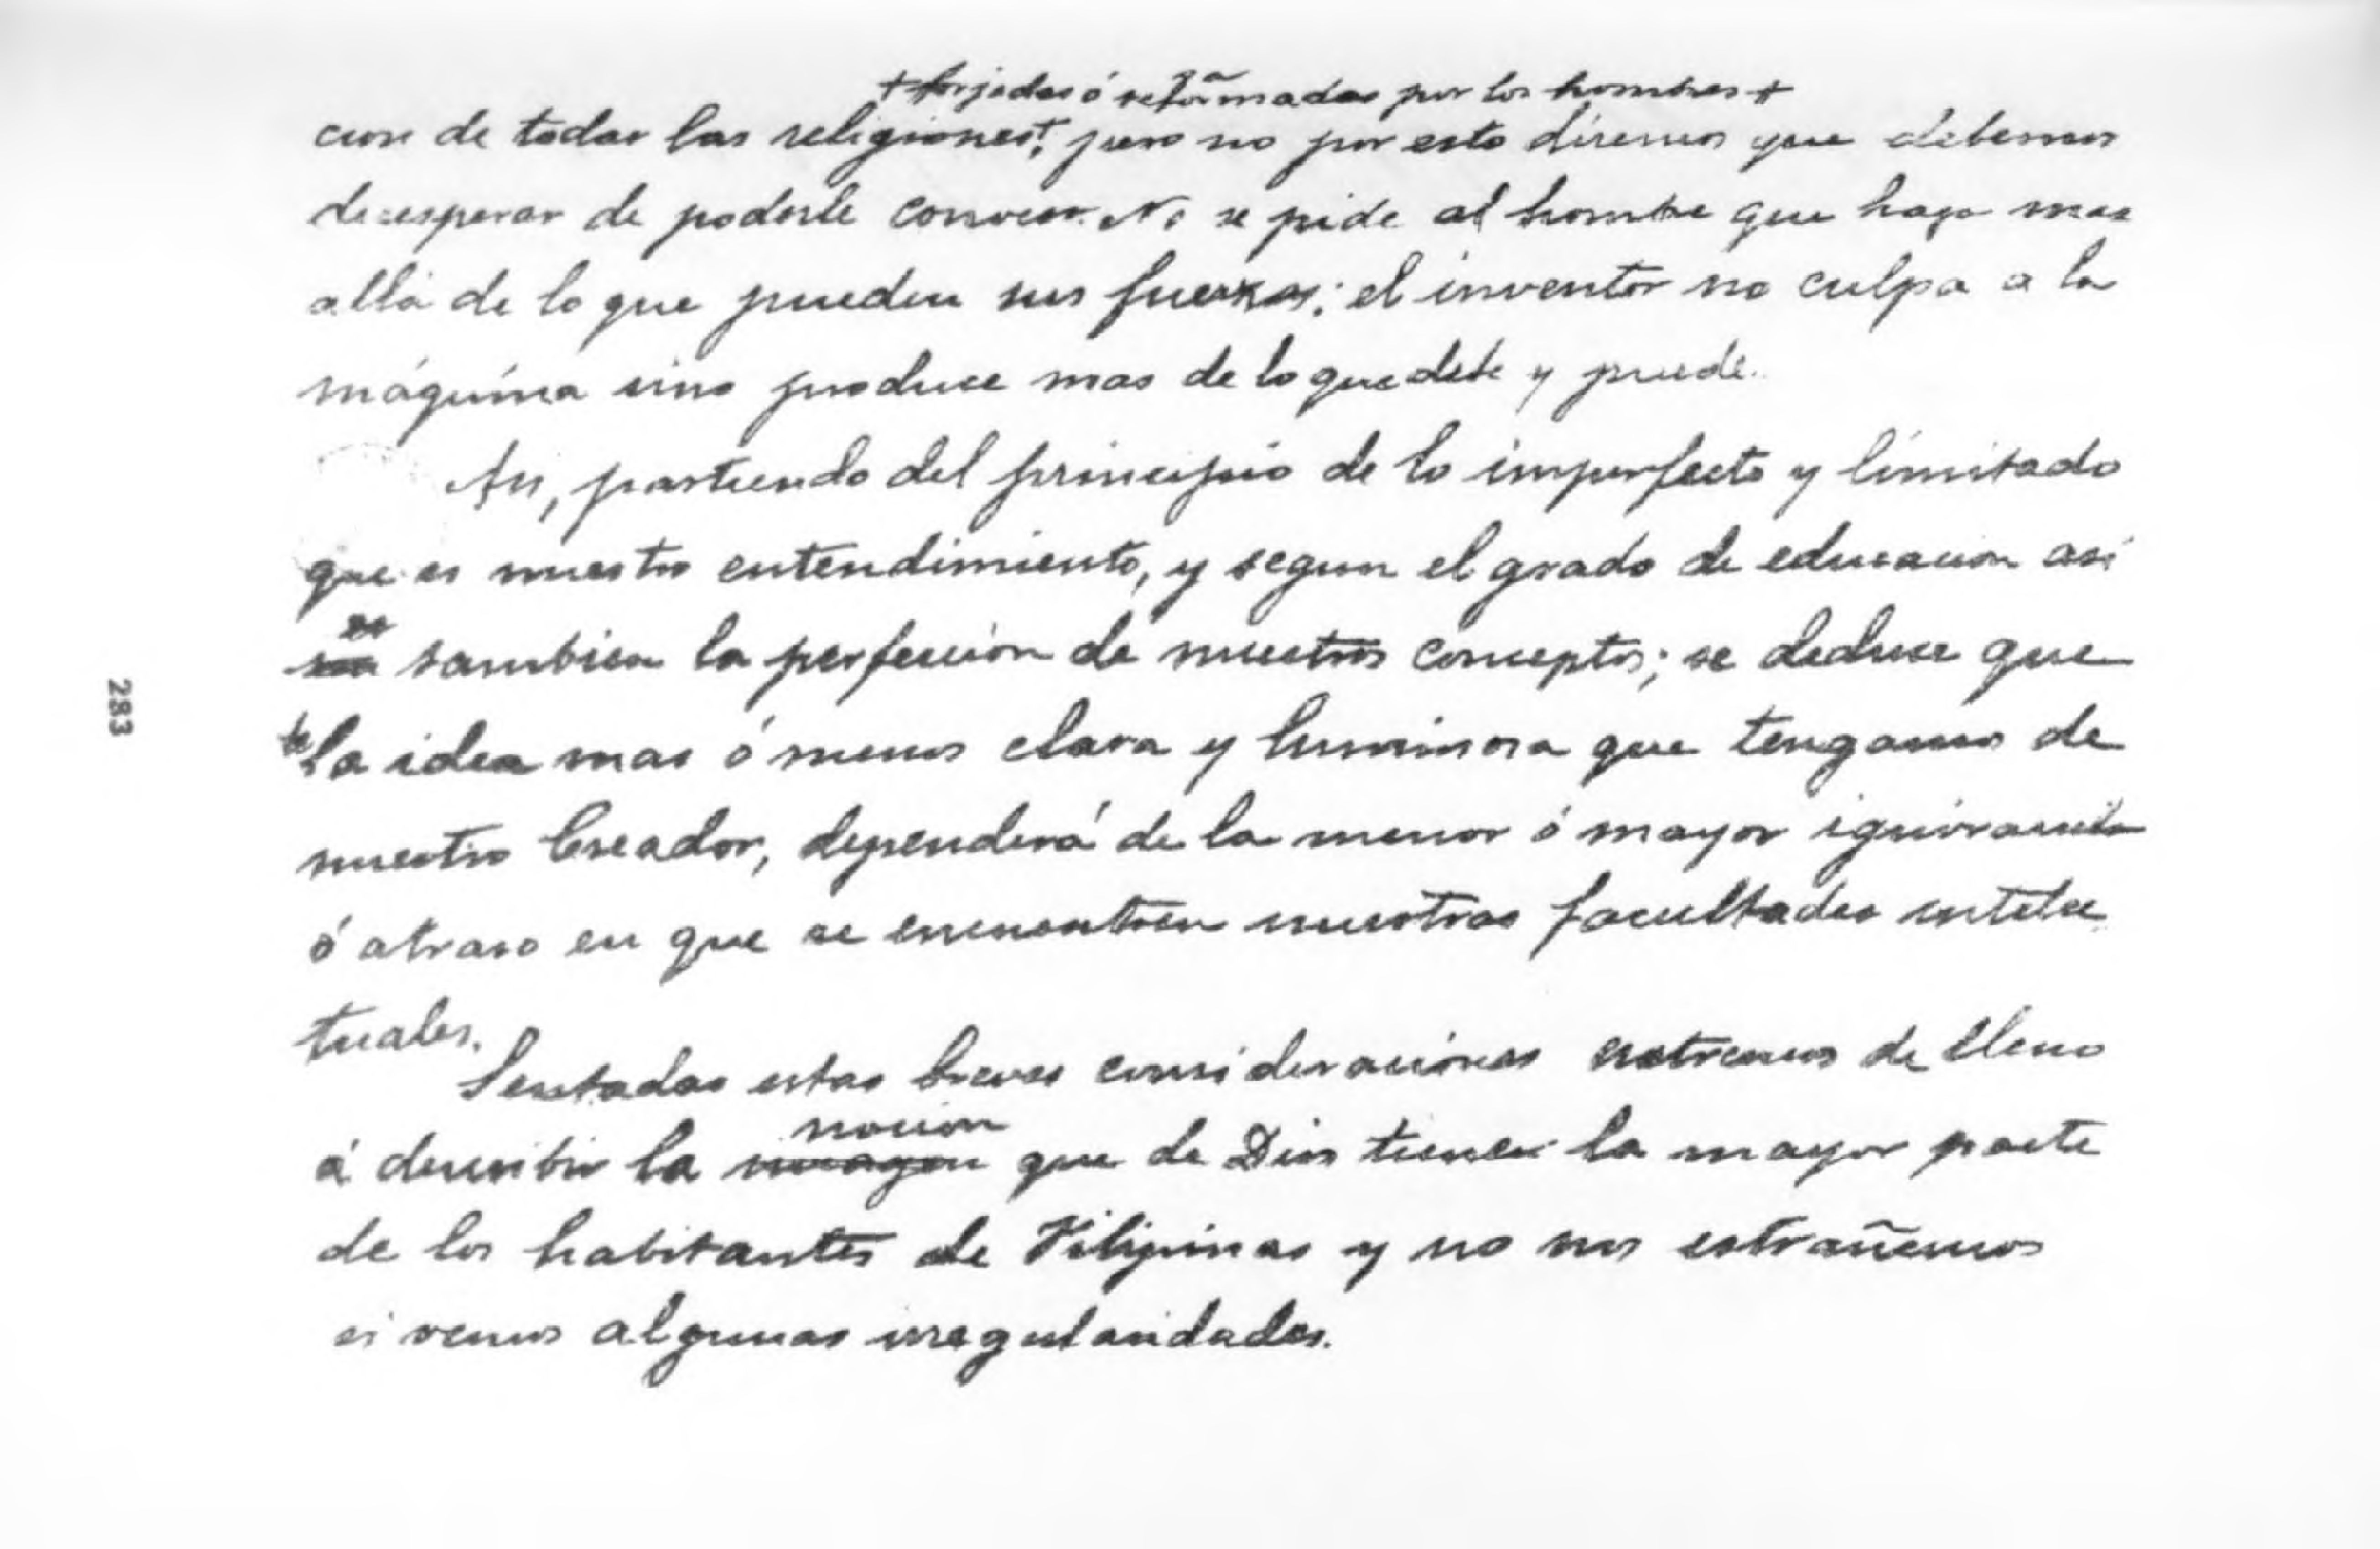 + forjadas ó reformadas por los hombres +
cion de todas las religiones+; pero no por esto diremos que debemos
desesperar de poderle conocer. No se pide al hombre que haga mas
allá de lo que pueden sus fuerzas; el inventor no culpa a la
máquina sino produce mas de lo que debe y puede.
Asi, partiendo del principio de lo imperfecto y limitado
que es nuestro entendimiento, y segun el grado de educacion asi
es
tambien la perfeccion de nuestros conceptos; se deduce que
la idea mas ó menos clara y luminosa que tengamos de
nuestro Creador, dependerá de la menor ó mayor ignorancia
ó atraso en que se encuentren nuestras facultades intelec
tuales.
Sentadas estas breves consideraciones entremos de lleno
nocion
á describir la imagen que de Dios tienen la mayor parte
de los habitantes de Filipinas y no nos estrañemos
si vemos algunas irregularidades.
283